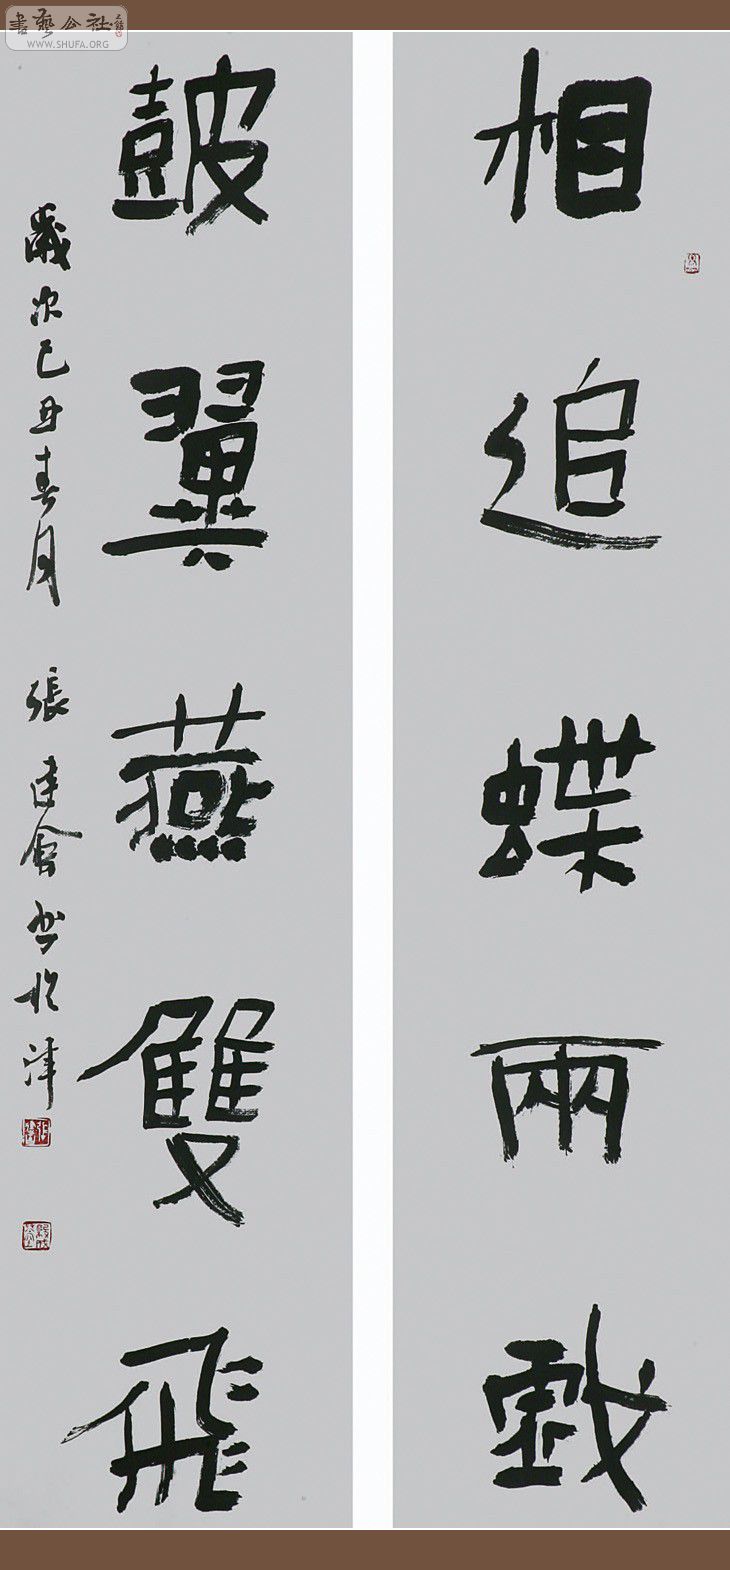 書藝公社
WWW.SHUFA.ORG
相追蝶兩戲
皷翼燕雙飛
歲次己丑春月 張建會書於津